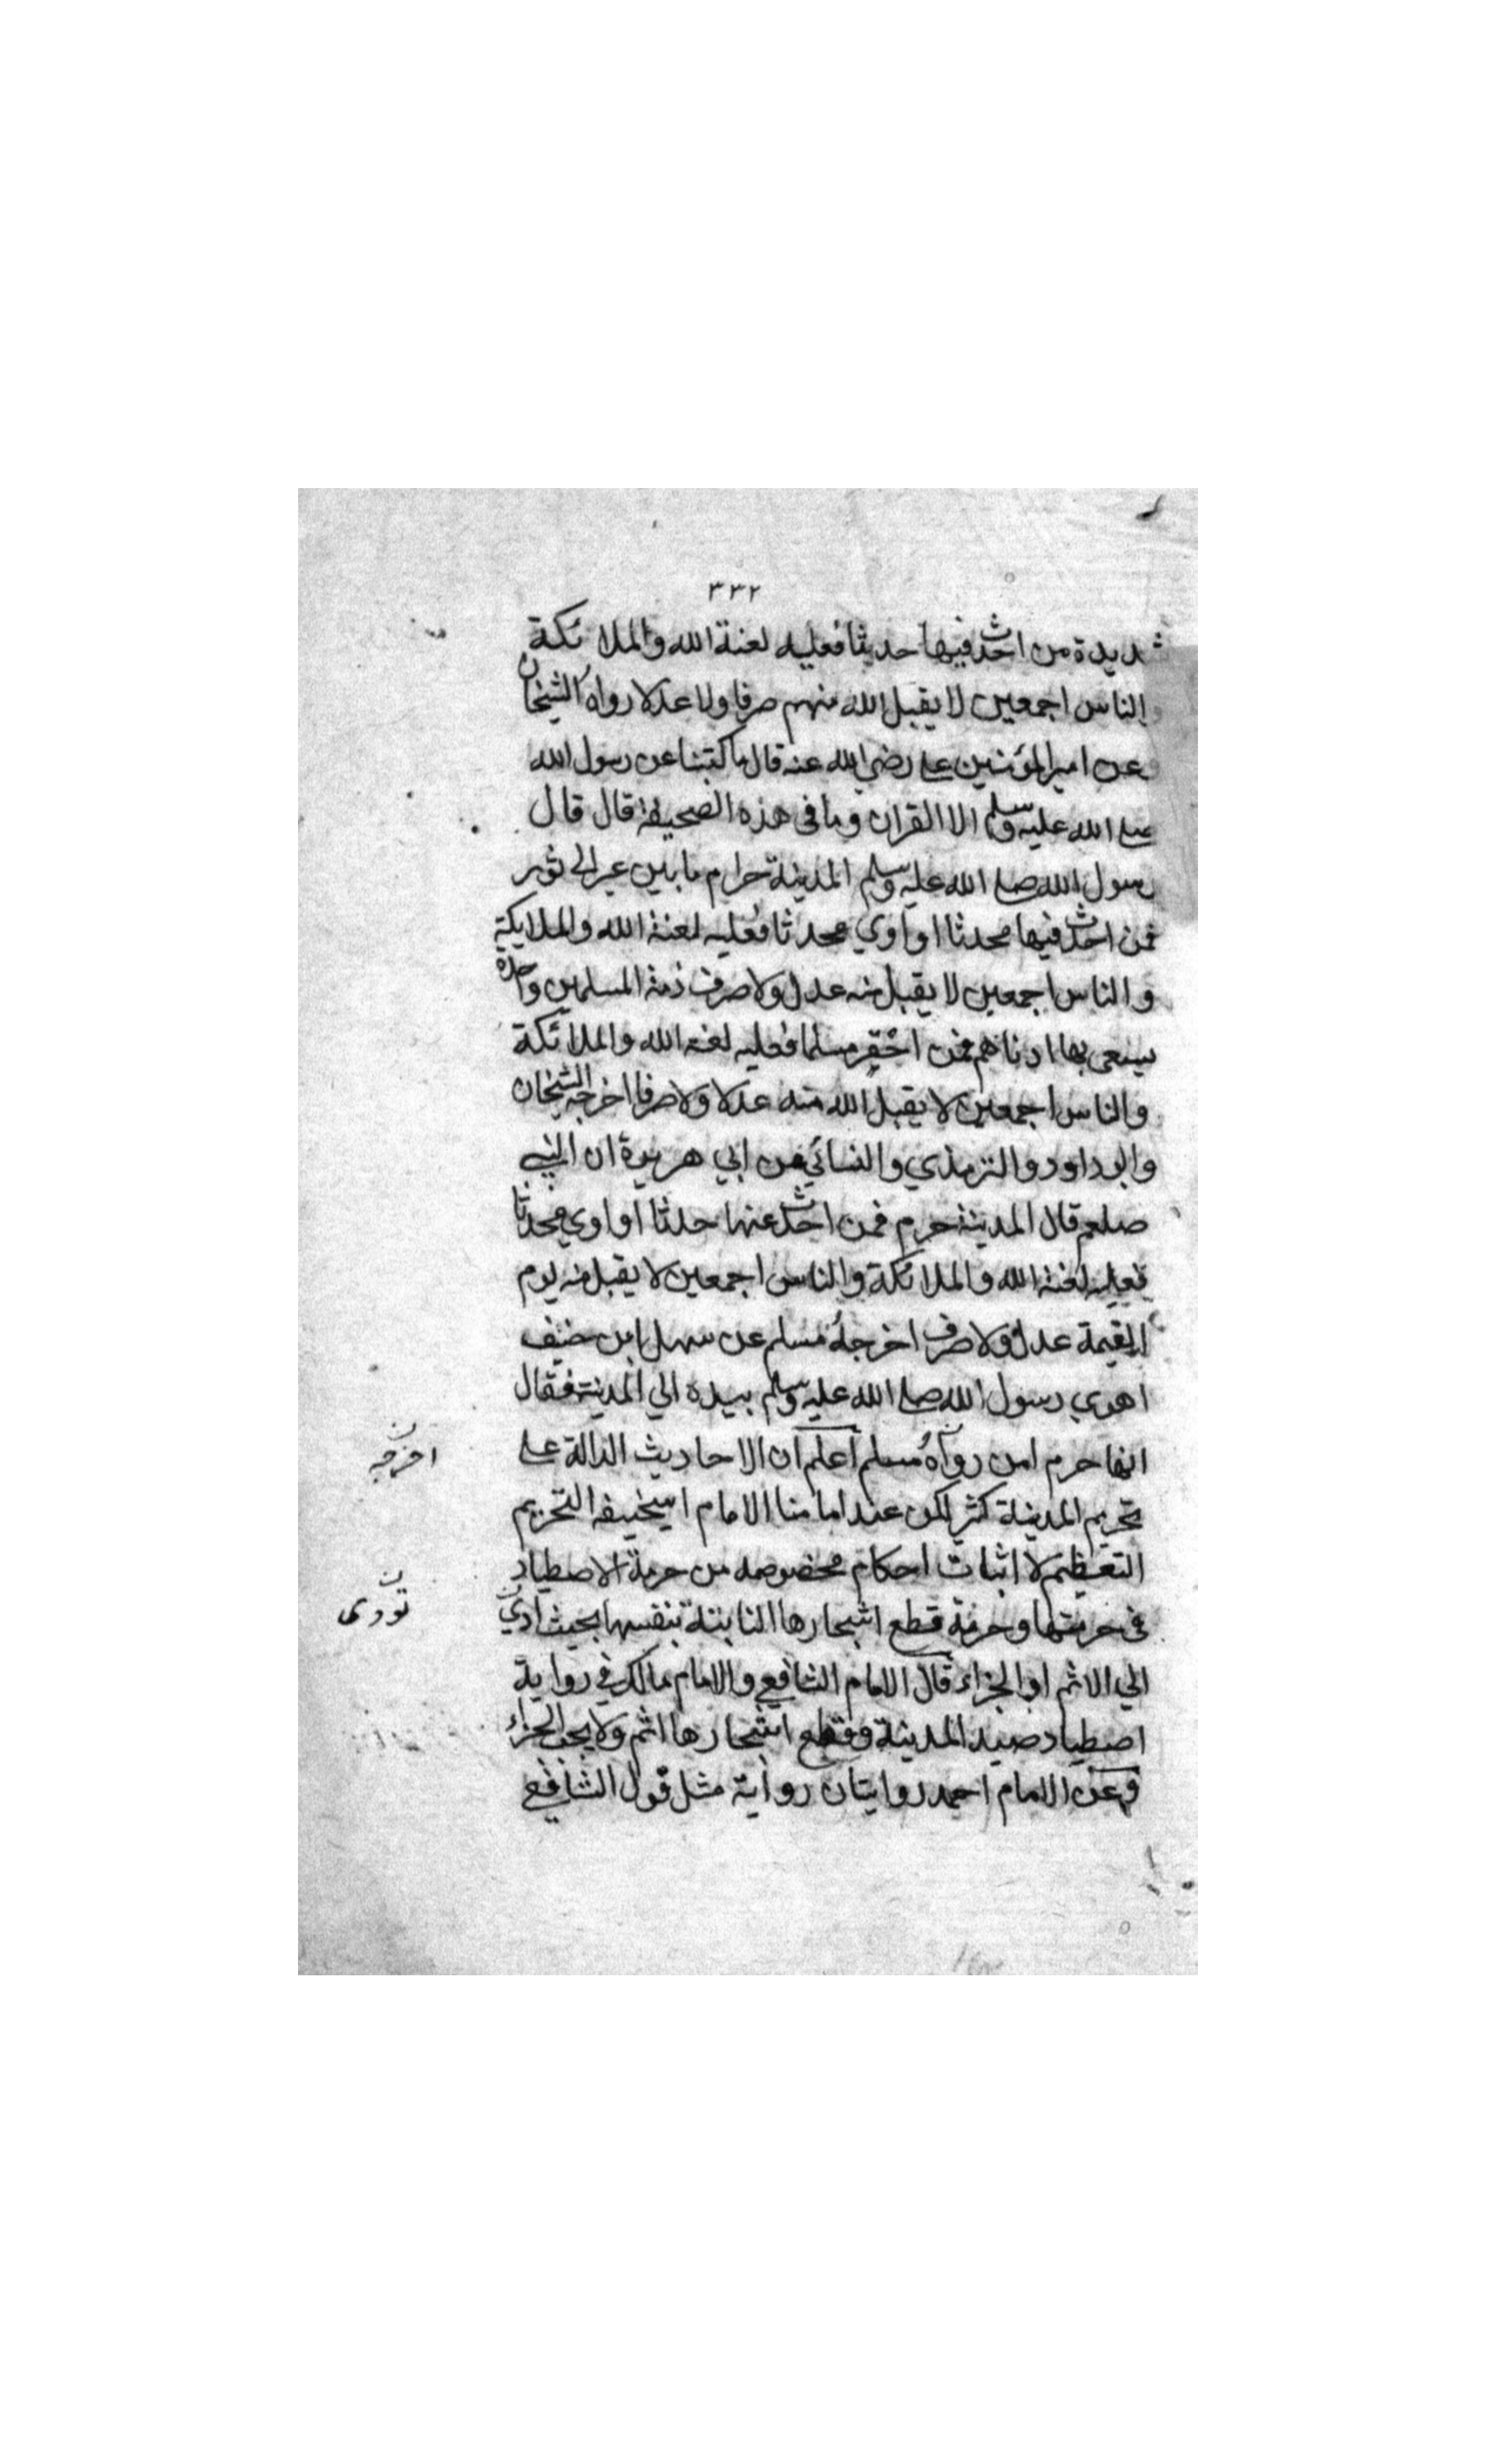 ٣٣٢
شديدة من احدث فيها حديثا فعليه لعنة الله والملائكة
والناس اجمعين لا يقبل الله منهم صرفا ولا عدلا رواه الشيخان
وعن امير المؤمنين علي رضي الله عنه قال ما كتبنا عن رسول الله
صلى الله عليه وسلم الا القران وما في هذه الصحيفة قال قال
رسول الله صلى الله عليه وسلم المدينة حرام ما بين عير الى ثور
فمن احدث فيها محدثا او اوي محدثا فعليه لعنة الله والملايكة
والناس اجمعين لا يقبل منه عدل ولا صرف ذمة المسلمين واحدة
يسعى بها ادناهم فمن اخقر مسلما فعليه لعنة الله والملائكة
والناس اجمعين لا يقبل الله منه عدلا ولا صرفا اخرجه الشيخان
وابو داود والترمذي والنسائي عن ابي هريرة ان النبي
صلعم قال المدينة حرم فمن احدث عنها حدثا او اوي محدثا
فعليه لعنة الله والملائكة والناس اجمعين لا يقبل منه يوم
القيمة عدل ولا صرف اخرجه مسلم عن سهل ابن حنيف
اهوي رسول الله صلى الله عليه وسلم بيده الي المدينة فقال
انها حرم امن رواه مسلم اعلم ان الاحاديث الدالة على
اخرجه ن
تحريم المدينة كثير لكن عند امامنا الامام ابيحنيفه التحريم
التعظيم لا اثبات احكام مخصوصه من حرمة الاصطياد
في حرمتها وحرمة قطع اشجارها النابتة بنفسها بحيث ادي
تؤدى ن
الي الاثم او الجزاء قال الامام الشافعي والامام مالك في رواية
اصطياد صيد المدينة وقطع اشجارها اثم ولا يجب الجزاء
وعن الامام احمد روايتان رواية مثل قول الشافعي